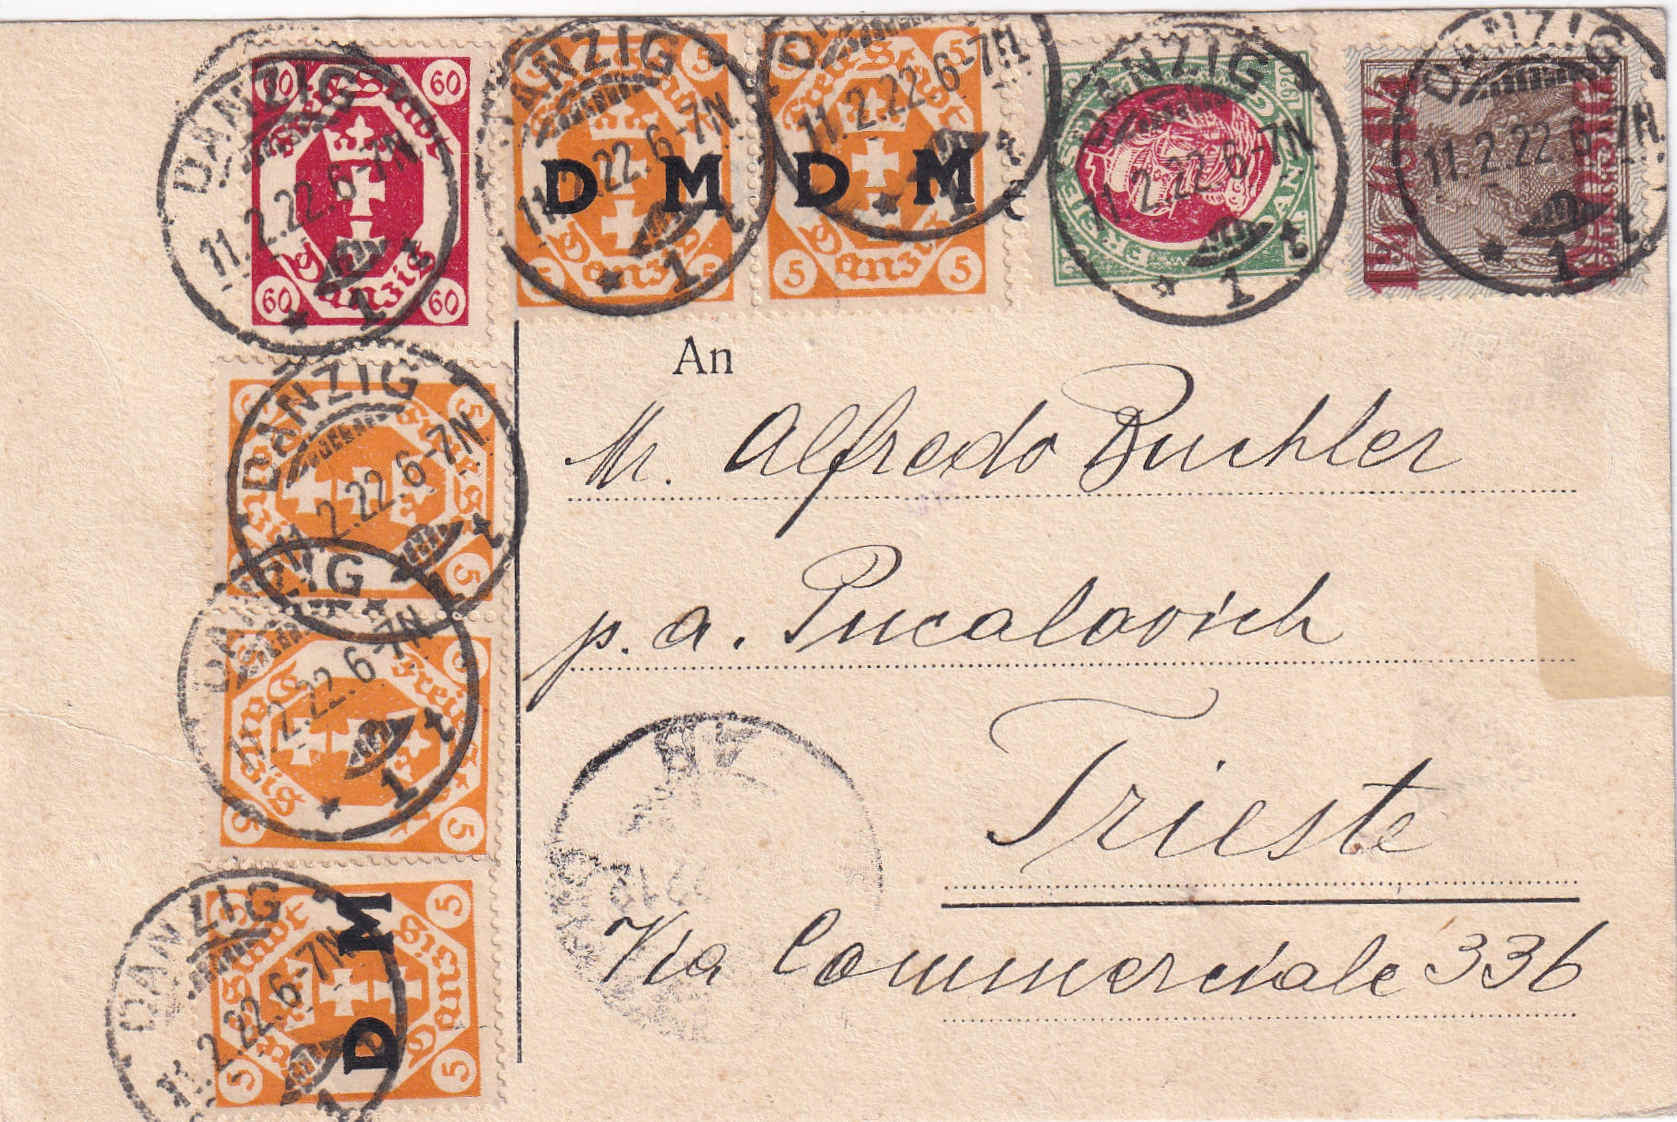 DANZIG
11.2.22.6-7N
* 1 t
60 60
60 60
Freie Stadt
Danzig
DANZIG
11.2.22.6-7N
* 1 t
5
D M
Danzig
5
11.2.22.6-7N
* 1 t
5
D M
Danzig
5 5
DANZIG
11.2.22.6-7N
* 1 t
DANZIG
11.2.22.6-7N
* 1 t
1¼
An
Mr. Alfredo Buchler
p. a. Pucalovich
Trieste
Via Commerciale 336
DANZIG
11.2.22.6-7N
* 1 t
5
5
DANZIG
2.22.6-7N
* 1 t
Freie Stadt
Danzig
5
DANZIG
11.2.22.6-7N
1
5
D M
Stadt
Danzig
5 5